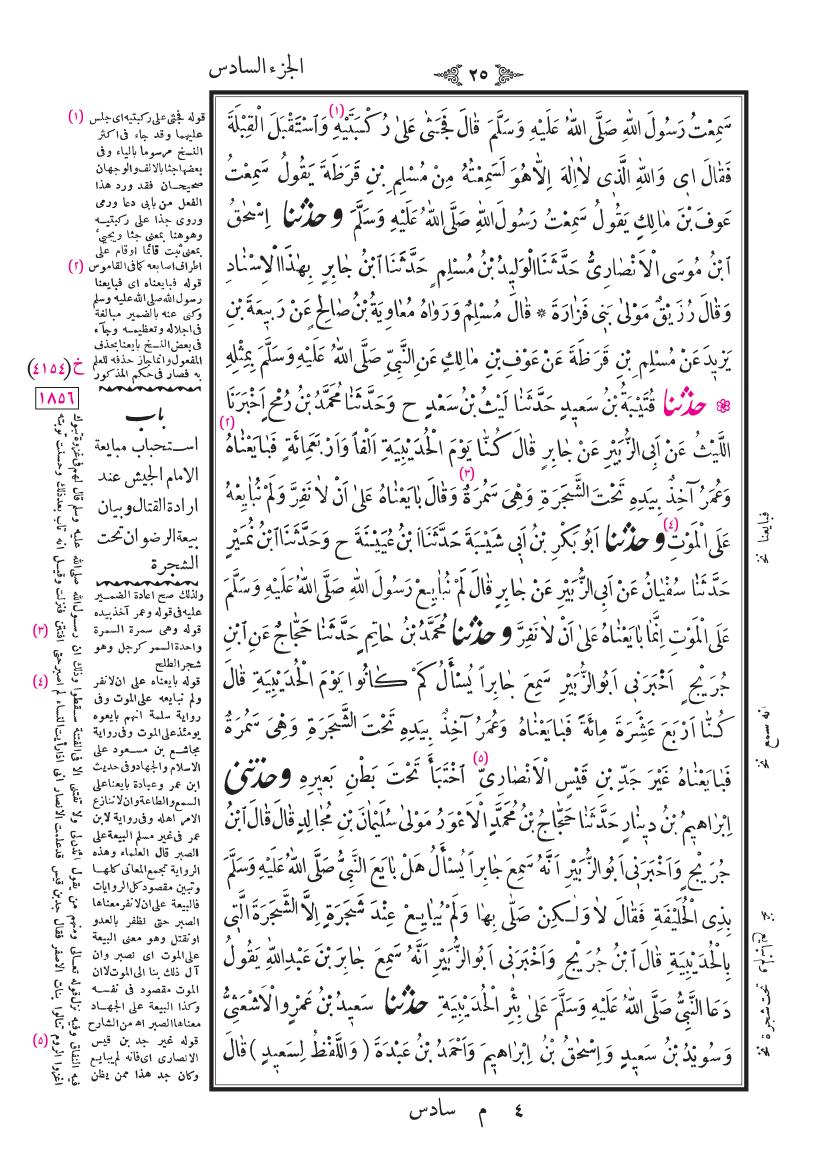 الجزء السادس
٢٥
سَمِعْتُ رَسُولَ اللهِ صَلَّى اللهُ عَلَيْهِ وَسَلَّمَ قَالَ فَجَثٰى عَلٰى رُكْبَتَيْهِ (١) وَاسْتَقْبَلَ الْقِبْلَةَ
فَقَالَ اى وَاللهِ الَّذِى لَا اِلٰهَ اِلَّا هُوَ لَسَمِعْتُهُ مِنْ مُسْلِمِ بْنِ قَرَظَةَ يَقُولُ سَمِعْتُ
عَوْفَ بْنَ مَالِكٍ يَقُولُ سَمِعْتُ رَسُولَ اللهِ صَلَّى اللهُ عَلَيْهِ وَسَلَّمَ وحدثنا اِسْحٰقُ
ابْنُ مُوسَى الْاَنْصَارِىُّ حَدَّثَنَا الْوَلِيدُ بْنُ مُسْلِمٍ حَدَّثَنَا ابْنُ جَابِرٍ بِهٰذَا الْاِسْنَادِ
وَقَالَ رُزَيْقٌ مَوْلٰى بَنِى فَزَارَةَ * قَالَ مُسْلِمٌ وَرَوَاهُ مُعَاوِيَةُ بْنُ صَالِحٍ عَنْ رَبِيعَةَ بْنِ
يَزِيدَ عَنْ مُسْلِمِ بْنِ قَرَظَةَ عَنْ عَوْفِ بْنِ مَالِكٍ عَنِ النَّبِىِّ صَلَّى اللهُ عَلَيْهِ وَسَلَّمَ بِمِثْلِهِ
حدثنا قُتَيْبَةُ بْنُ سَعِيدٍ حَدَّثَنَا لَيْثُ بْنُ سَعْدٍ ح وَحَدَّثَنَا مُحَمَّدُ بْنُ رُمْحٍ اَخْبَرَنَا
اللَّيْثُ عَنْ اَبِى الزُّبَيْرِ عَنْ جَابِرٍ قَالَ كُنَّا يَوْمَ الْحُدَيْبِيَةِ اَلْفًا وَاَرْبَعَمِائَةٍ فَبَايَعْنَاهُ (٢)
وَعُمَرُ آخِذٌ بِيَدِهِ تَحْتَ الشَّجَرَةِ وَهِىَ سَمُرَةٌ (٣) وَقَالَ بَايَعْنَاهُ عَلٰى اَنْ لَا نَفِرَّ وَلَمْ نُبَايِعْهُ
عَلَى الْمَوْتِ (٤) وحدثنا اَبُو بَكْرِ بْنُ اَبِى شَيْبَةَ حَدَّثَنَا ابْنُ عُيَيْنَةَ ح وَحَدَّثَنَا ابْنُ نُمَيْرٍ
حَدَّثَنَا سُفْيَانُ عَنْ اَبِى الزُّبَيْرِ عَنْ جَابِرٍ قَالَ لَمْ نُبَايِعْ رَسُولَ اللهِ صَلَّى اللهُ عَلَيْهِ وَسَلَّمَ
عَلَى الْمَوْتِ اِنَّمَا بَايَعْنَاهُ عَلٰى اَنْ لَا نَفِرَّ وحدثنا مُحَمَّدُ بْنُ حَاتِمٍ حَدَّثَنَا حَجَّاجٌ عَنِ ابْنِ
جُرَيْجٍ اَخْبَرَنِى اَبُو الزُّبَيْرِ سَمِعَ جَابِرًا يُسْأَلُ كَمْ كَانُوا يَوْمَ الْحُدَيْبِيَةِ قَالَ
كُنَّا اَرْبَعَ عَشْرَةَ مِائَةً فَبَايَعْنَاهُ وَعُمَرُ آخِذٌ بِيَدِهِ تَحْتَ الشَّجَرَةِ وَهِىَ سَمُرَةٌ
فَبَايَعْنَاهُ غَيْرَ جَدِّ بْنِ قَيْسٍ الْاَنْصَارِىِّ (٥) اخْتَبَأَ تَحْتَ بَطْنِ بَعِيرِهِ وحدثنى
اِبْرَاهِيمُ بْنُ دِينَارٍ حَدَّثَنَا حَجَّاجُ بْنُ مُحَمَّدٍ الْاَعْوَرُ مَوْلٰى سُلَيْمَانَ بْنِ مُجَالِدٍ قَالَ قَالَ ابْنُ
جُرَيْجٍ وَاَخْبَرَنِى اَبُو الزُّبَيْرِ اَنَّهُ سَمِعَ جَابِرًا يُسْأَلُ هَلْ بَايَعَ النَّبِىُّ صَلَّى اللهُ عَلَيْهِ وَسَلَّمَ
بِذِى الْحُلَيْفَةِ فَقَالَ لَا وَلٰكِنْ صَلّٰى بِهَا وَلَمْ يُبَايِعْ عِنْدَ شَجَرَةٍ اِلَّا الشَّجَرَةَ الَّتِى
بِالْحُدَيْبِيَةِ قَالَ ابْنُ جُرَيْجٍ وَاَخْبَرَنِى اَبُو الزُّبَيْرِ اَنَّهُ سَمِعَ جَابِرَ بْنَ عَبْدِ اللهِ يَقُولُ
دَعَا النَّبِىُّ صَلَّى اللهُ عَلَيْهِ وَسَلَّمَ عَلٰى بِئْرِ الْحُدَيْبِيَةِ حدثنا سَعِيدُ بْنُ عَمْرٍو الْاَشْعَثِىُّ
وَسُوَيْدُ بْنُ سَعِيدٍ وَاِسْحٰقُ بْنُ اِبْرَاهِيمَ وَاَحْمَدُ بْنُ عَبْدَةَ (وَاللَّفْظُ لِسَعِيدٍ) قَالَ
(١) قوله فجثى على ركبتيه اى جلس
عليهما وقد جاء فى اكثر
النسخ مرسوما بالياء وفى
بعضها جثا بالالف والوجهان
صحيحان فقد ورد هذا
الفعل من بابى دعا ورمى
وروى جذا على ركبتيه
وهو هنا بمعنى جثا ويجئ
بمعنى ثبت قائما او قام على
اطراف اصابعه كما فى القاموس
(٢) قوله فبايعناه اى فبايعنا
رسول الله صلى الله عليه وسلم
وكنى عنه بالضمير مبالغة
فى اجلاله وتعظيمه وجاء
فى بعض النسخ بايعنا بحذف
المفعول وانما جاز حذفه للعلم
به فصار فى حكم المذكور
خ (٤١٥٤)
١٨٥٦
باب
استحباب مبايعة
الامام الجيش عند
ارادة القتال وبيان
بيعة الرضوان تحت
الشجرة
ولذلك صح اعادة الضمير
عليه فى قوله وعمر آخذ بيده
(٣) قوله وهى سمرة السمرة
واحدة السمر كرجل وهو
شجر الطلح
(٤) قوله بايعناه على ان لا نفر
ولم نبايعه على الموت وفى
رواية سلمة انهم بايعوه
يومئذ على الموت وفى رواية
مجاشع بن مسعود على
الاسلام والجهاد وفى حديث
ابن عمر وعبادة بايعنا على
السمع والطاعة وان لا ننازع
الامر اهله وفى رواية لابن
عمر فى غير مسلم البيعة على
الصبر قال العلماء وهذه
الرواية تجمع المعانى كلها
وتبين مقصود كل الروايات
فالبيعة على ان لا نفر معناها
الصبر حتى نظفر بالعدو
او نقتل وهو معنى البيعة
على الموت اى نصبر وان
آل ذلك بنا الى الموت لا ان
الموت مقصود فى نفسه
وكذا البيعة على الجهاد
معناها الصبر اه من الشارح
(٥) قوله غير جد بن قيس
الانصارى اى فانه لم يبايع
وكان جد هذا ممن يظن
فبايعنا نخ
انه سمع نخ
ولم نبايع تحت شجرة نخ
٤ م سادس